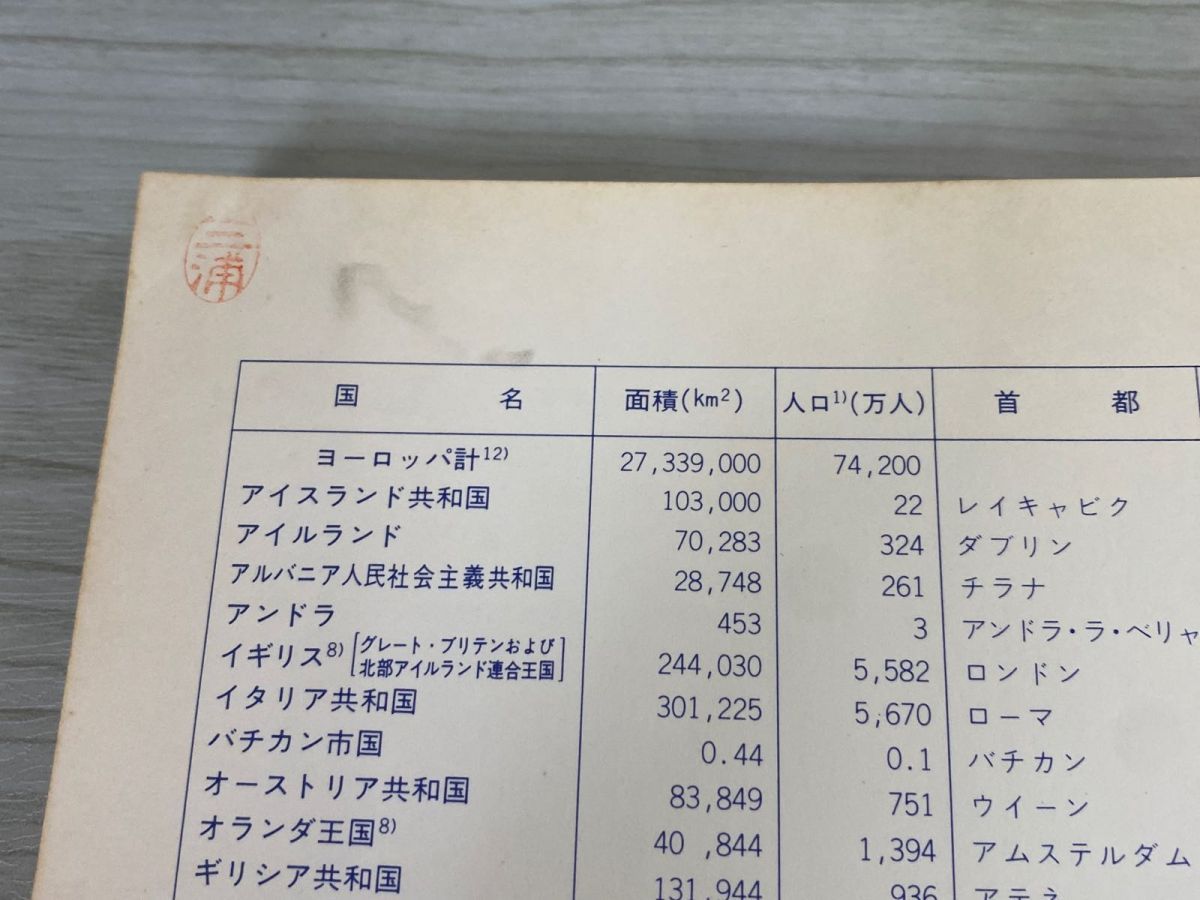 三浦
国名 面積(km²) 人口¹⁾(万人) 首都
ヨーロッパ計¹²⁾ 27,339,000 74,200
アイスランド共和国 103,000 22 レイキャビク
アイルランド 70,283 324 ダブリン
アルバニア人民社会主義共和国 28,748 261 チラナ
アンドラ 453 3 アンドラ・ラ・ベリャ
イギリス⁸⁾[グレート・ブリテンおよび
北部アイルランド連合王国] 244,030 5,582 ロンドン
イタリア共和国 301,225 5,670 ローマ
バチカン市国 0.44 0.1 バチカン
オーストリア共和国 83,849 751 ウイーン
オランダ王国⁸⁾ 40,844 1,394 アムステルダム
ギリシア共和国 131,944 936 アテネ